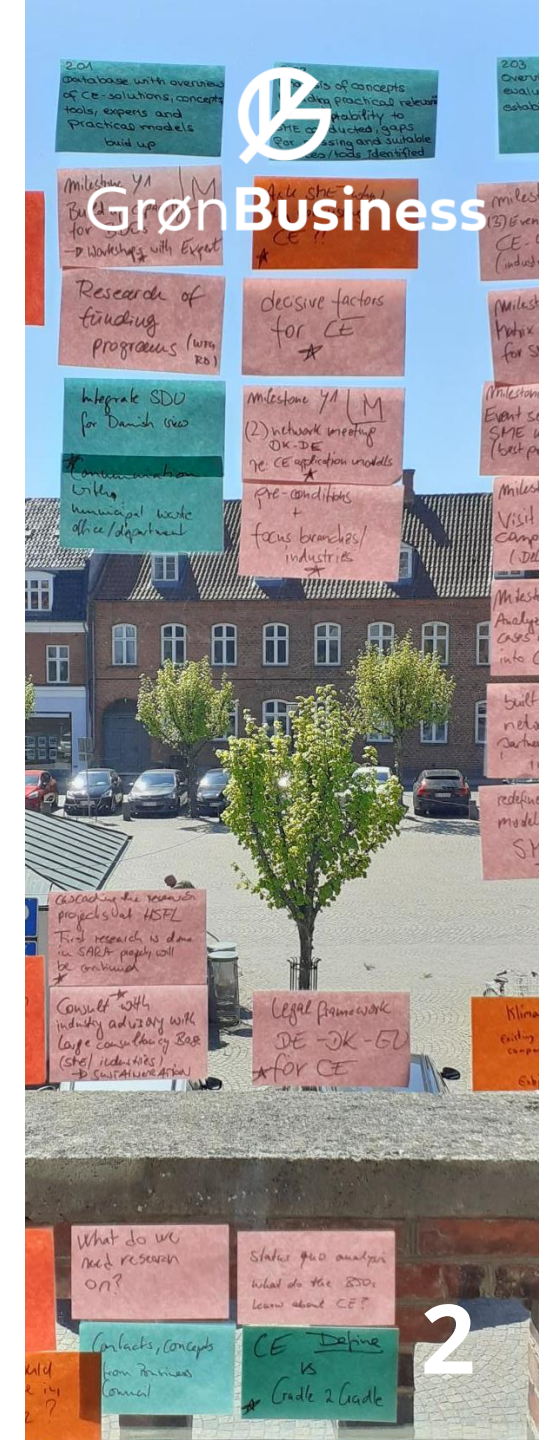 201
Database with overview
of CE-solutions, concepts
tools, experts and
practical models
build up
of concepts
practical relevan
ptability to
SME conducted, gaps
for ssing and suitable
tools identified
203
Overvi
evalu
estab
GrønBusiness
Milestone Y1 M
for
→ Workshops with Expert
Ask SME what
CE ??
Milest
(3) Even
CE-
(indust
Research of
funding
programs (
decisive factors
for CE
Milest
Matrix
for S
Integrate SDU
for Danish view
Milestone Y1 M
(2) network meeting
DK-DE
re. CE application models
Milestone
Event se
SME w
(best pr
Communication
with
municipal waste
office/department
Pre-conditions
+
focus branches/
industries
Milest
Visit
camp
(De
Milest
Analyz
cases
into C
built
netw
partne
redefine
model
SM
Cascading the research
projects at HSFL
First research is done
in SARA project, will
be continued
Consult with
industry advisory with
large consultancy Base
(SME/industries)
Legal framework
DE-DK-EU
for CE
Klima
Existing
compa
What do we
need research
on?
Status quo analysis
what do the BSOs
know about CE?
Contacts, concepts
from Business
Council
CE Define
vs
Cradle 2 Cradle
uld
in
?
2